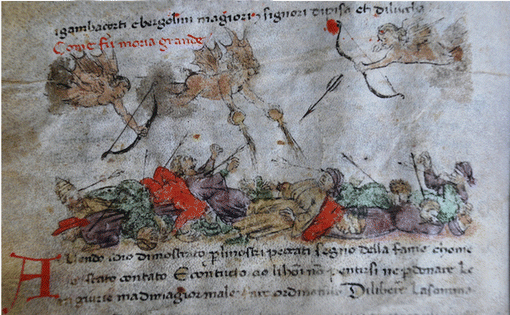 igambacorti ebergolini magiori signori dipisa et diluccha
Come fu moria grande
Auendo idio dimostrato plinostri peccati segno della fame chome
stato contato E contucto cio lihoi no pentirsi ne pdonare le
iniurie ma di magior male fare ordinauano Diliberò